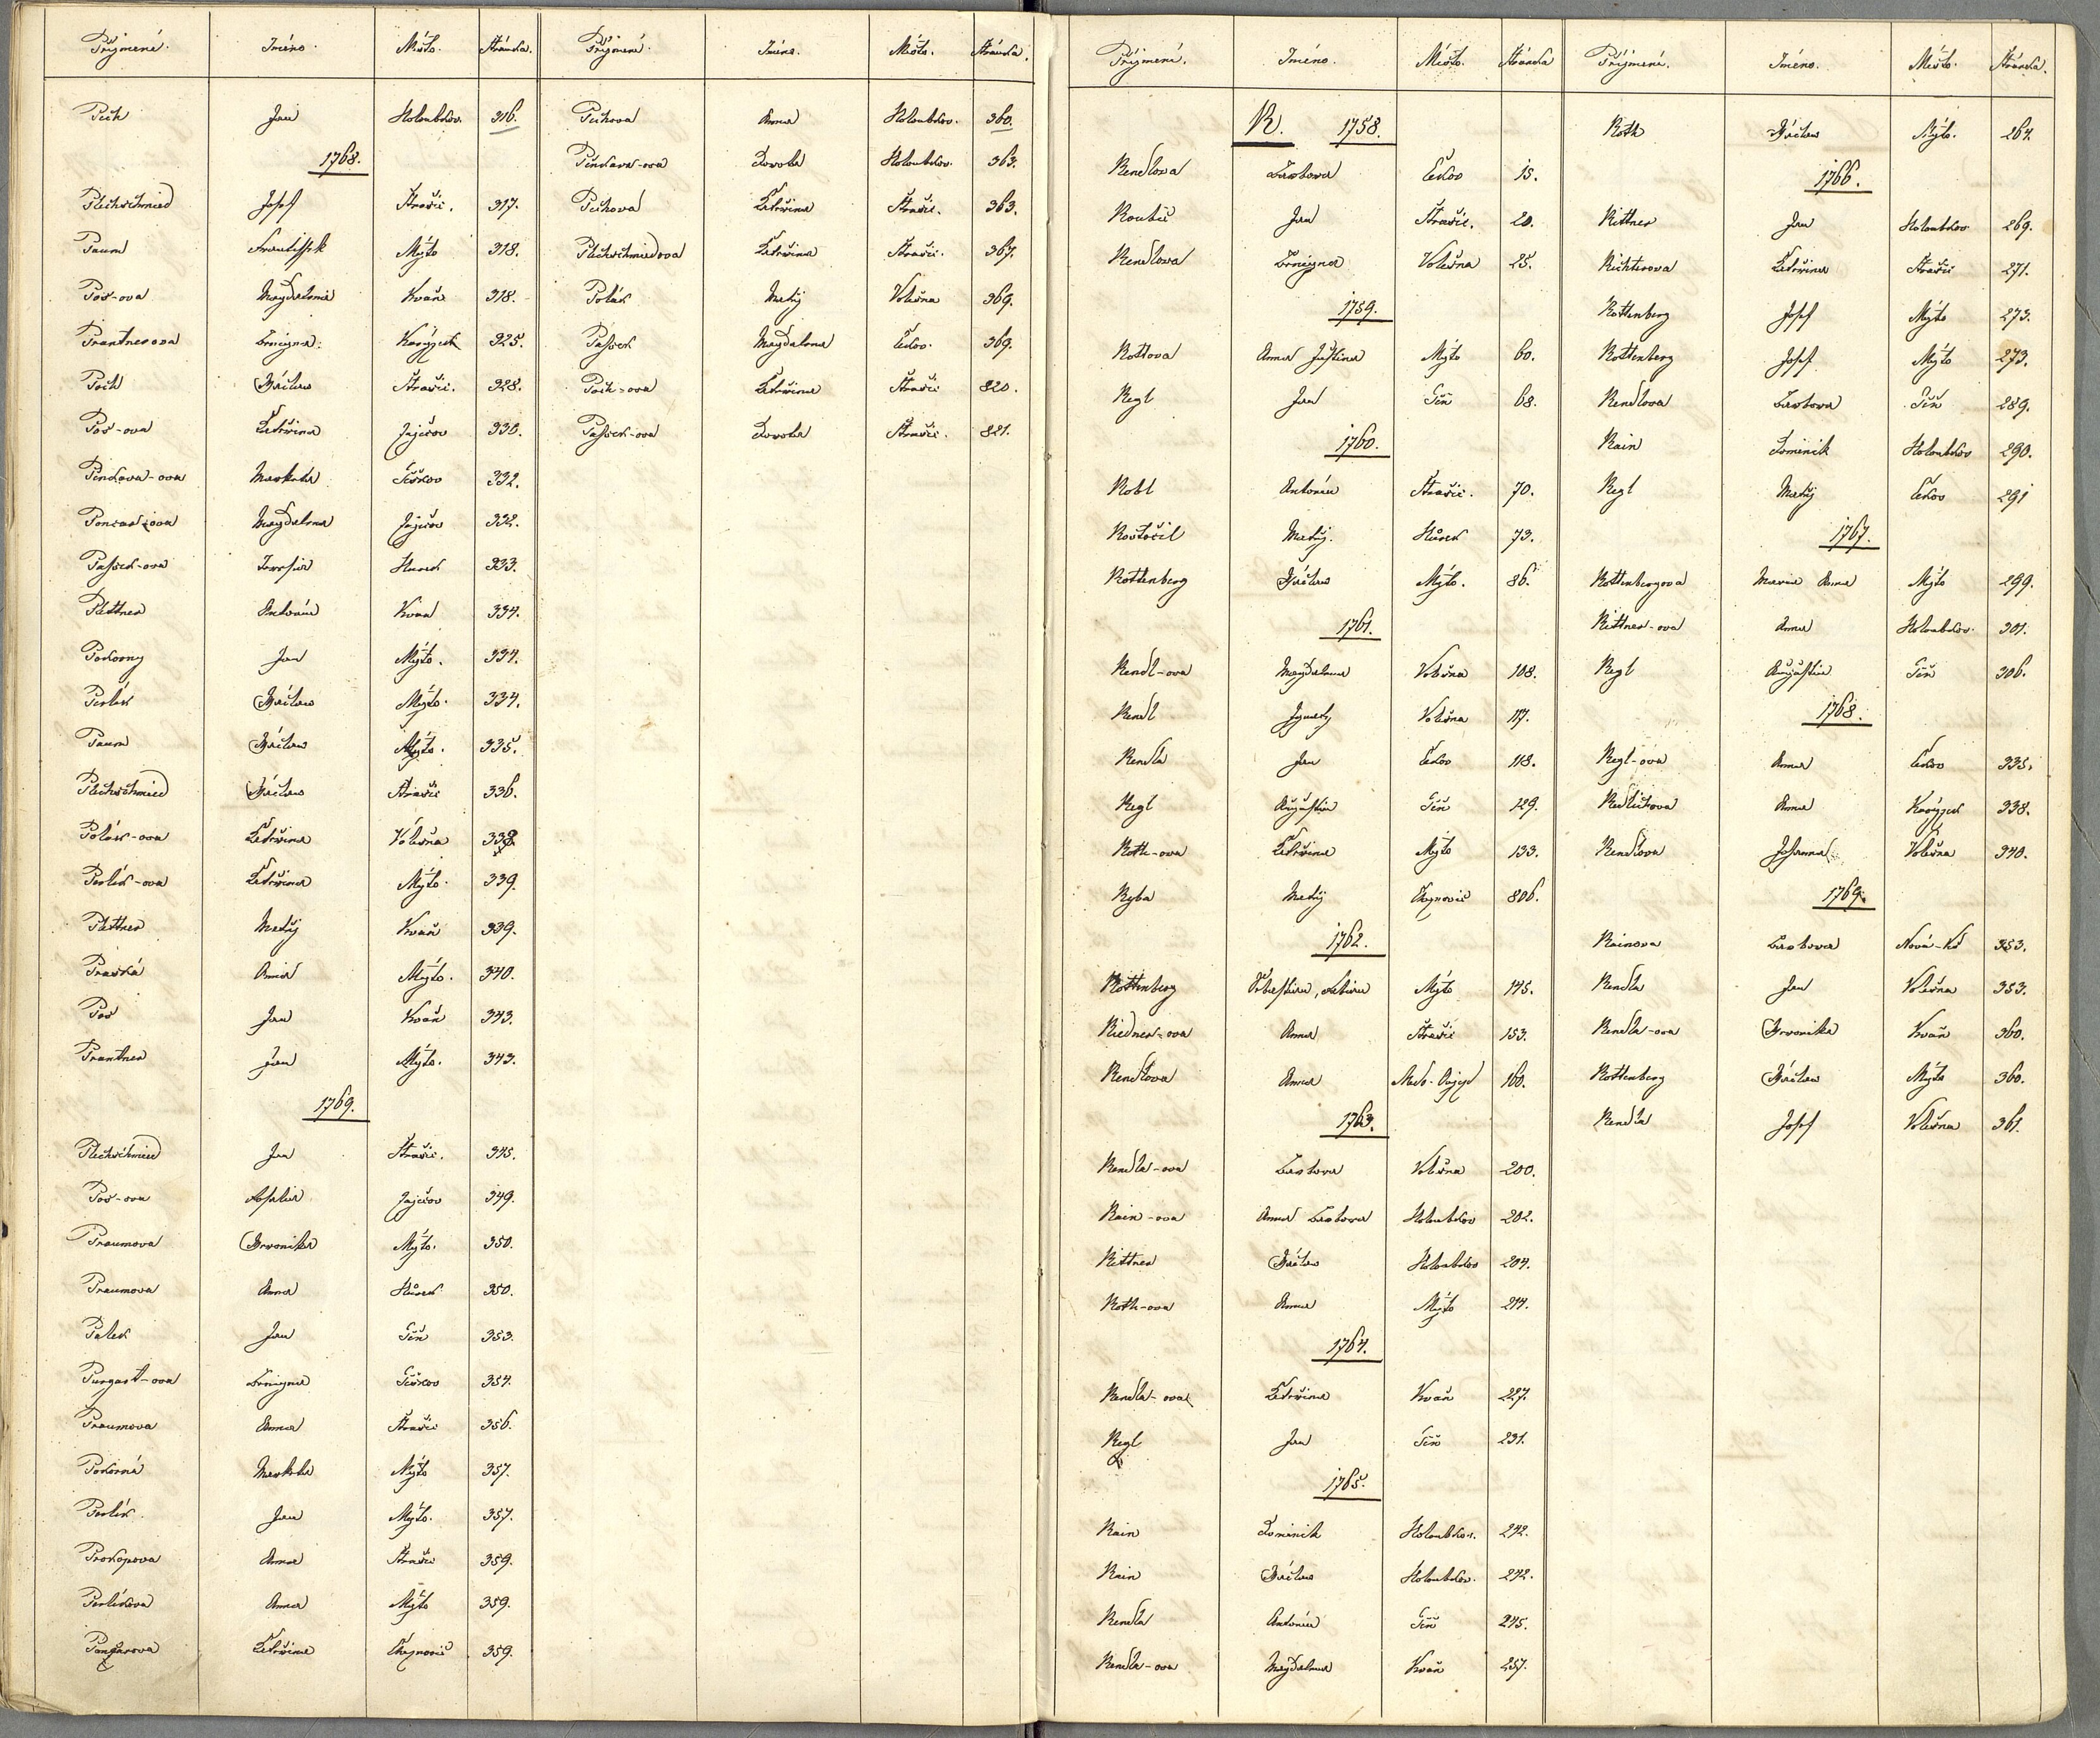 Příjmení. Jméno. Místo. Stránka.
Pich Jan Holoubkov. 316.
1768.
Plechschmied Josef Strašic. 317.
Paum František Mýto 318.
Pos-ova Magdalena Kvaň 318.
Prantnerova Kará­zek 325.
Václav Strašic. 328.
Pos-ova Kateřina Jajčov 330.
Markéta Těškov 332.
Magdalena Jajčov 332.
Hůrek 333.
Plattner Antonín Kvaň 334.
Pokorny Jan Mýto. 334.
Perlík Václav Mýto. 334.
Paum Václav Mýto. 335.
Plechschmied Václav Strašic 336.
Polák-ova Kateřina Volešna 338.
Perlík-ova Kateřina Mýto. 339.
Plattner Matěj Kvaň 339.
Pravda Anna Mýto. 340.
Pos Jan Kvaň 343.
Prantner Jan Mýto. 343.
1769.
Plechschmied Jan Strašic. 345.
Pos-ova Rosalia Jajčov 349.
Praumova Veronika Mýto. 350.
Praumova Anna Hůrek 350.
Palek Jan Těň 353.
Purgart-ova Těškov 354.
Praumova Anna Strašic 356.
Pokorná Markéta Mýto 357.
Perlík Jan Mýto. 357.
Prokopova Anna Strašic 359.
Perlíkova Anna Mýto 359.
Kateřina Cheznovic 359.
Příjmení. Jméno. Místo. Stránka.
Pichova Anna Holoubkov. 360.
Dorota Holoubkov. 363.
Pichova Kateřina Strašic. 363.
Plechschmiedova Kateřina Strašic. 367.
Polák Matěj Volešna 369.
Pašek Magdalena Cekov. 369.
Pich-ova Kateřina Strašic 820.
Pašek-ova Dorota Strašic. 821.
Příjmení. Jméno. Místo. Stránka
R. 1758.
Rendlova Barbora Cekov 15.
Roubič Jan Strašic. 20.
Rendlova Volešna 25.
1759.
Rottova Anna Justina Mýto 60.
Regl Jan Těň 68.
1760.
Robl Antonín Strašic. 70.
Roztočil Matěj. Hůrek 73.
Rottenberg Václav Mýto. 86.
1761.
Rendl-ova Magdalena Volešna 108.
Rendl Ignatz Volešna 117.
Rendla Jan Cekov 118.
Regl Augustin Těň 129.
Roth-ova Kateřina Mýto 133.
Ryba Matěj Cheznovic 806.
1762.
Rottenberg Mýto 145.
Riedner-ova Anna Strašic 153.
Rendlova Anna 160.
1763.
Rendla-ova Barbora Volešna 200.
Rain-ova Anna Barbora Holoubkov 202.
Rittner Václav Holoubkov 204.
Roth-ova Anna Mýto 214.
1764.
Rendla-ova Kateřina Kvaň 227.
Regl Jan Těň 231.
1765.
Rain Dominik Holoubkov. 242.
Rain Václav Holoubkov. 242.
Rendla Antonín Těň 245.
Rendla-ova Magdalena Kvaň 257.
Příjmení. Jméno. Místo. Stránka.
Roth Václav Mýto. 264.
1766.
Rittner Jan Holoubkov 269.
Richterova Kateřina Strašic 271.
Rottenberg Josef Mýto 273.
Rottenberg Josef Mýto 273.
Rendlova Barbora Těň 289.
Rain Dominik Holoubkov 290.
Regl Matěj Cekov 291
1767.
Rottenbergova Marie Anna Mýto 299.
Rittner-ova Anna Holoubkov. 301.
Regl Augustin Těň 306.
1768.
Regl-ova Anna Cekov 335.
Redlichova Anna Karýzek 338.
Rendlova Johanna Volešna 340.
1769.
Rainova Barbora Nová-Ves 353.
Rendla Jan Volešna 353.
Rendla-ova Veronika Kvaň 360.
Rottenberg Václav Mýto 360.
Rendla Josef Volešna 361.